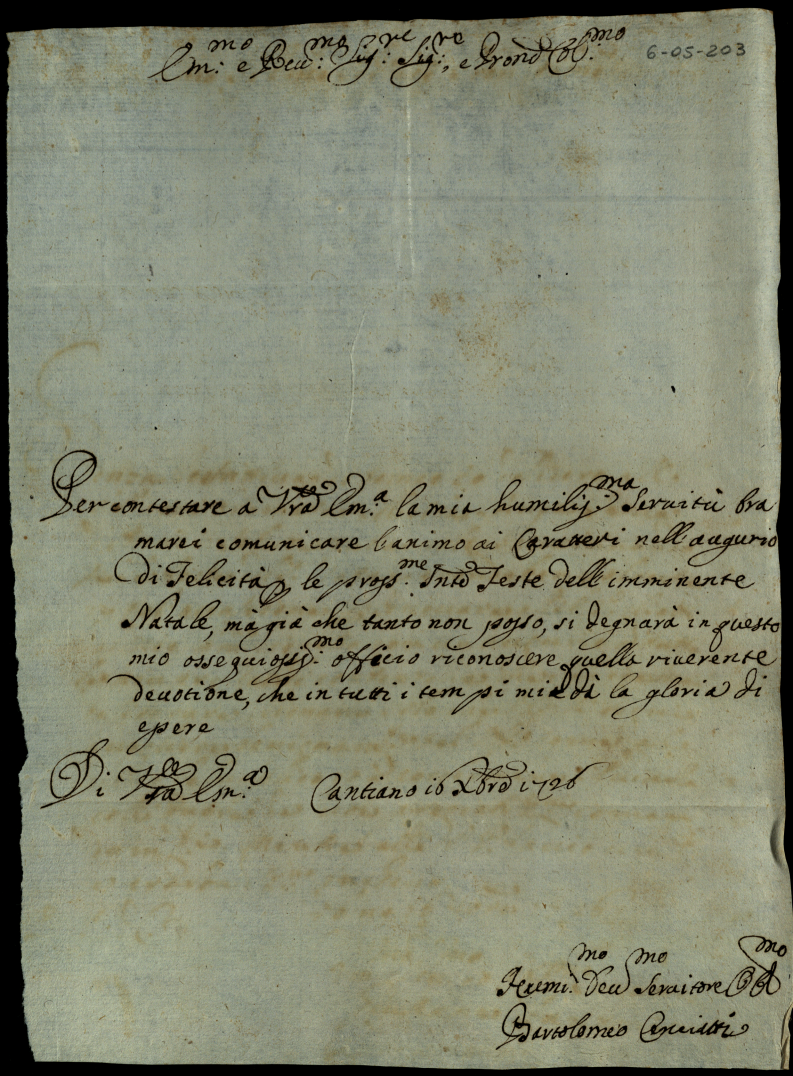 Em:mo e Reu:mo Sig:re Sig:re, e Pron Col:mo
6-05-203
Per contestare a Vra Em:a la mia humiliss:ma Seruitù bra
marei comunicare l'animo ai Caratteri nell'augurio
di Felicità p le pross:me Snte Feste dell'imminente
Natale, mà già che tanto non posso, si degnarà in questo
mio ossequiosiss:mo officio riconoscere quella riuerente
deuotione, che in tutti i tempi mi dà la gloria di
essere
Di Vra Em:a Cantiano 16 Xbre 1726
Humi:mo Deu:mo Seruitore Obl:mo
Bartolomeo